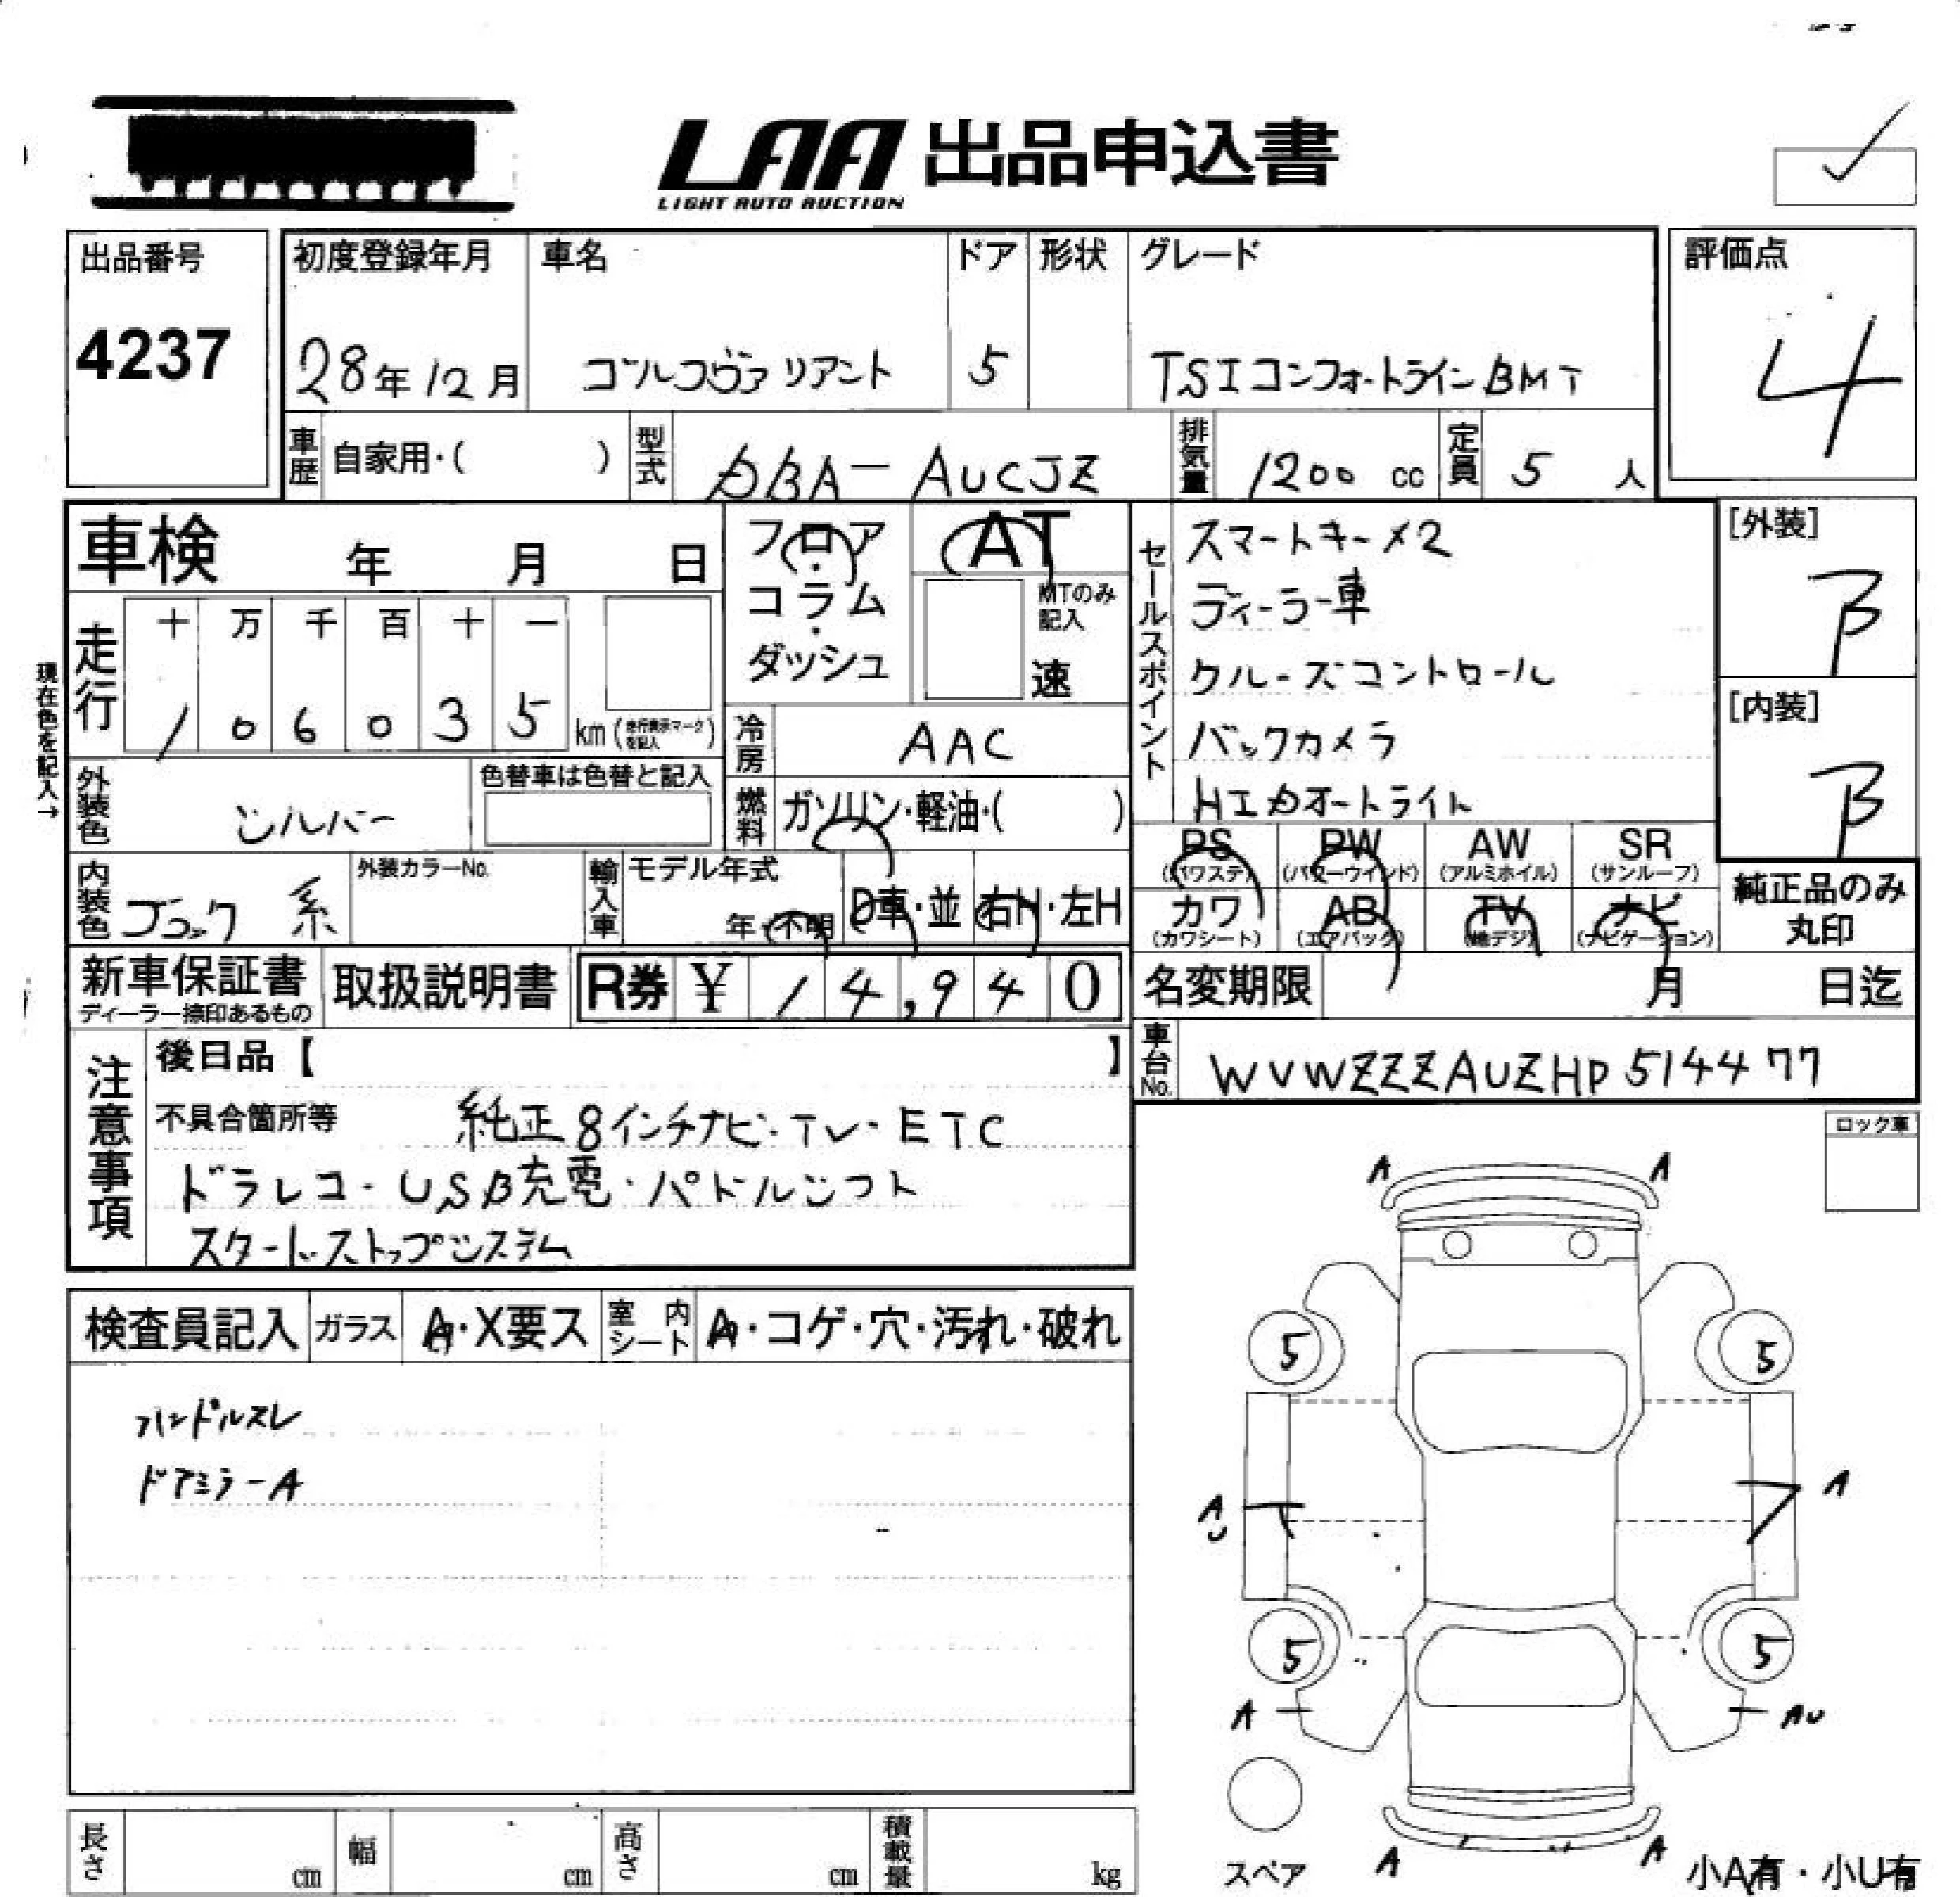 LAA 出品申込書
LIGHT AUTO AUCTION
出品番号
4237
初度登録年月
28年12月
車名
ゴルフヴァリアント
ドア
5
形状
グレード
TSIコンフォートラインBMT
評価点
4
車歴 自家用・( )
型式 DBA-AUCJZ
排気量 1200 cc
定員 5 人
車検 年 月 日
フロア・コラム・ダッシュ
AT
MTのみ記入
速
セールスポイント
スマートキー×2
ディーラー車
クルーズコントロール
バックカメラ
HIDオートライト
[外装]
B
[内装]
B
現在色を記入→
走行
十 万 千 百 十 一
1 0 6 0 3 5 km (走行表示マークを記入)
冷房 AAC
外装色 シルバー
色替車は色替と記入
燃料 ガソリン・軽油・( )
PS (パワステ) PW (パワーウインド) AW (アルミホイル) SR (サンルーフ)
カワ (カワシート) AB (エアバック) TV (地デジ) ナビ (ナビゲーション)
純正品のみ丸印
内装色 ブラック 系
外装カラーNo.
輸入車 モデル年式
年・不明
D車・並
右H・左H
新車保証書
ディーラー捺印あるもの
取扱説明書
R券 ¥ 14,940
名変期限 月 日迄
車台No. WVWZZZAUZHP514477
注意事項
後日品【 】
不具合箇所等 純正8インチナビ・TV・ETC
ドラレコ・USB充電・パドルシフト
スタート・ストップシステム
ロック車
検査員記入
ガラス A・X要ス
室内シート A・コゲ・穴・汚れ・破れ
ハンドルスレ
ドアミラーA
A A
5 5
A
AU
5 5
A AU
A A
スペア
小A有・小U有
長さ cm
幅 cm
高さ cm
積載量 kg